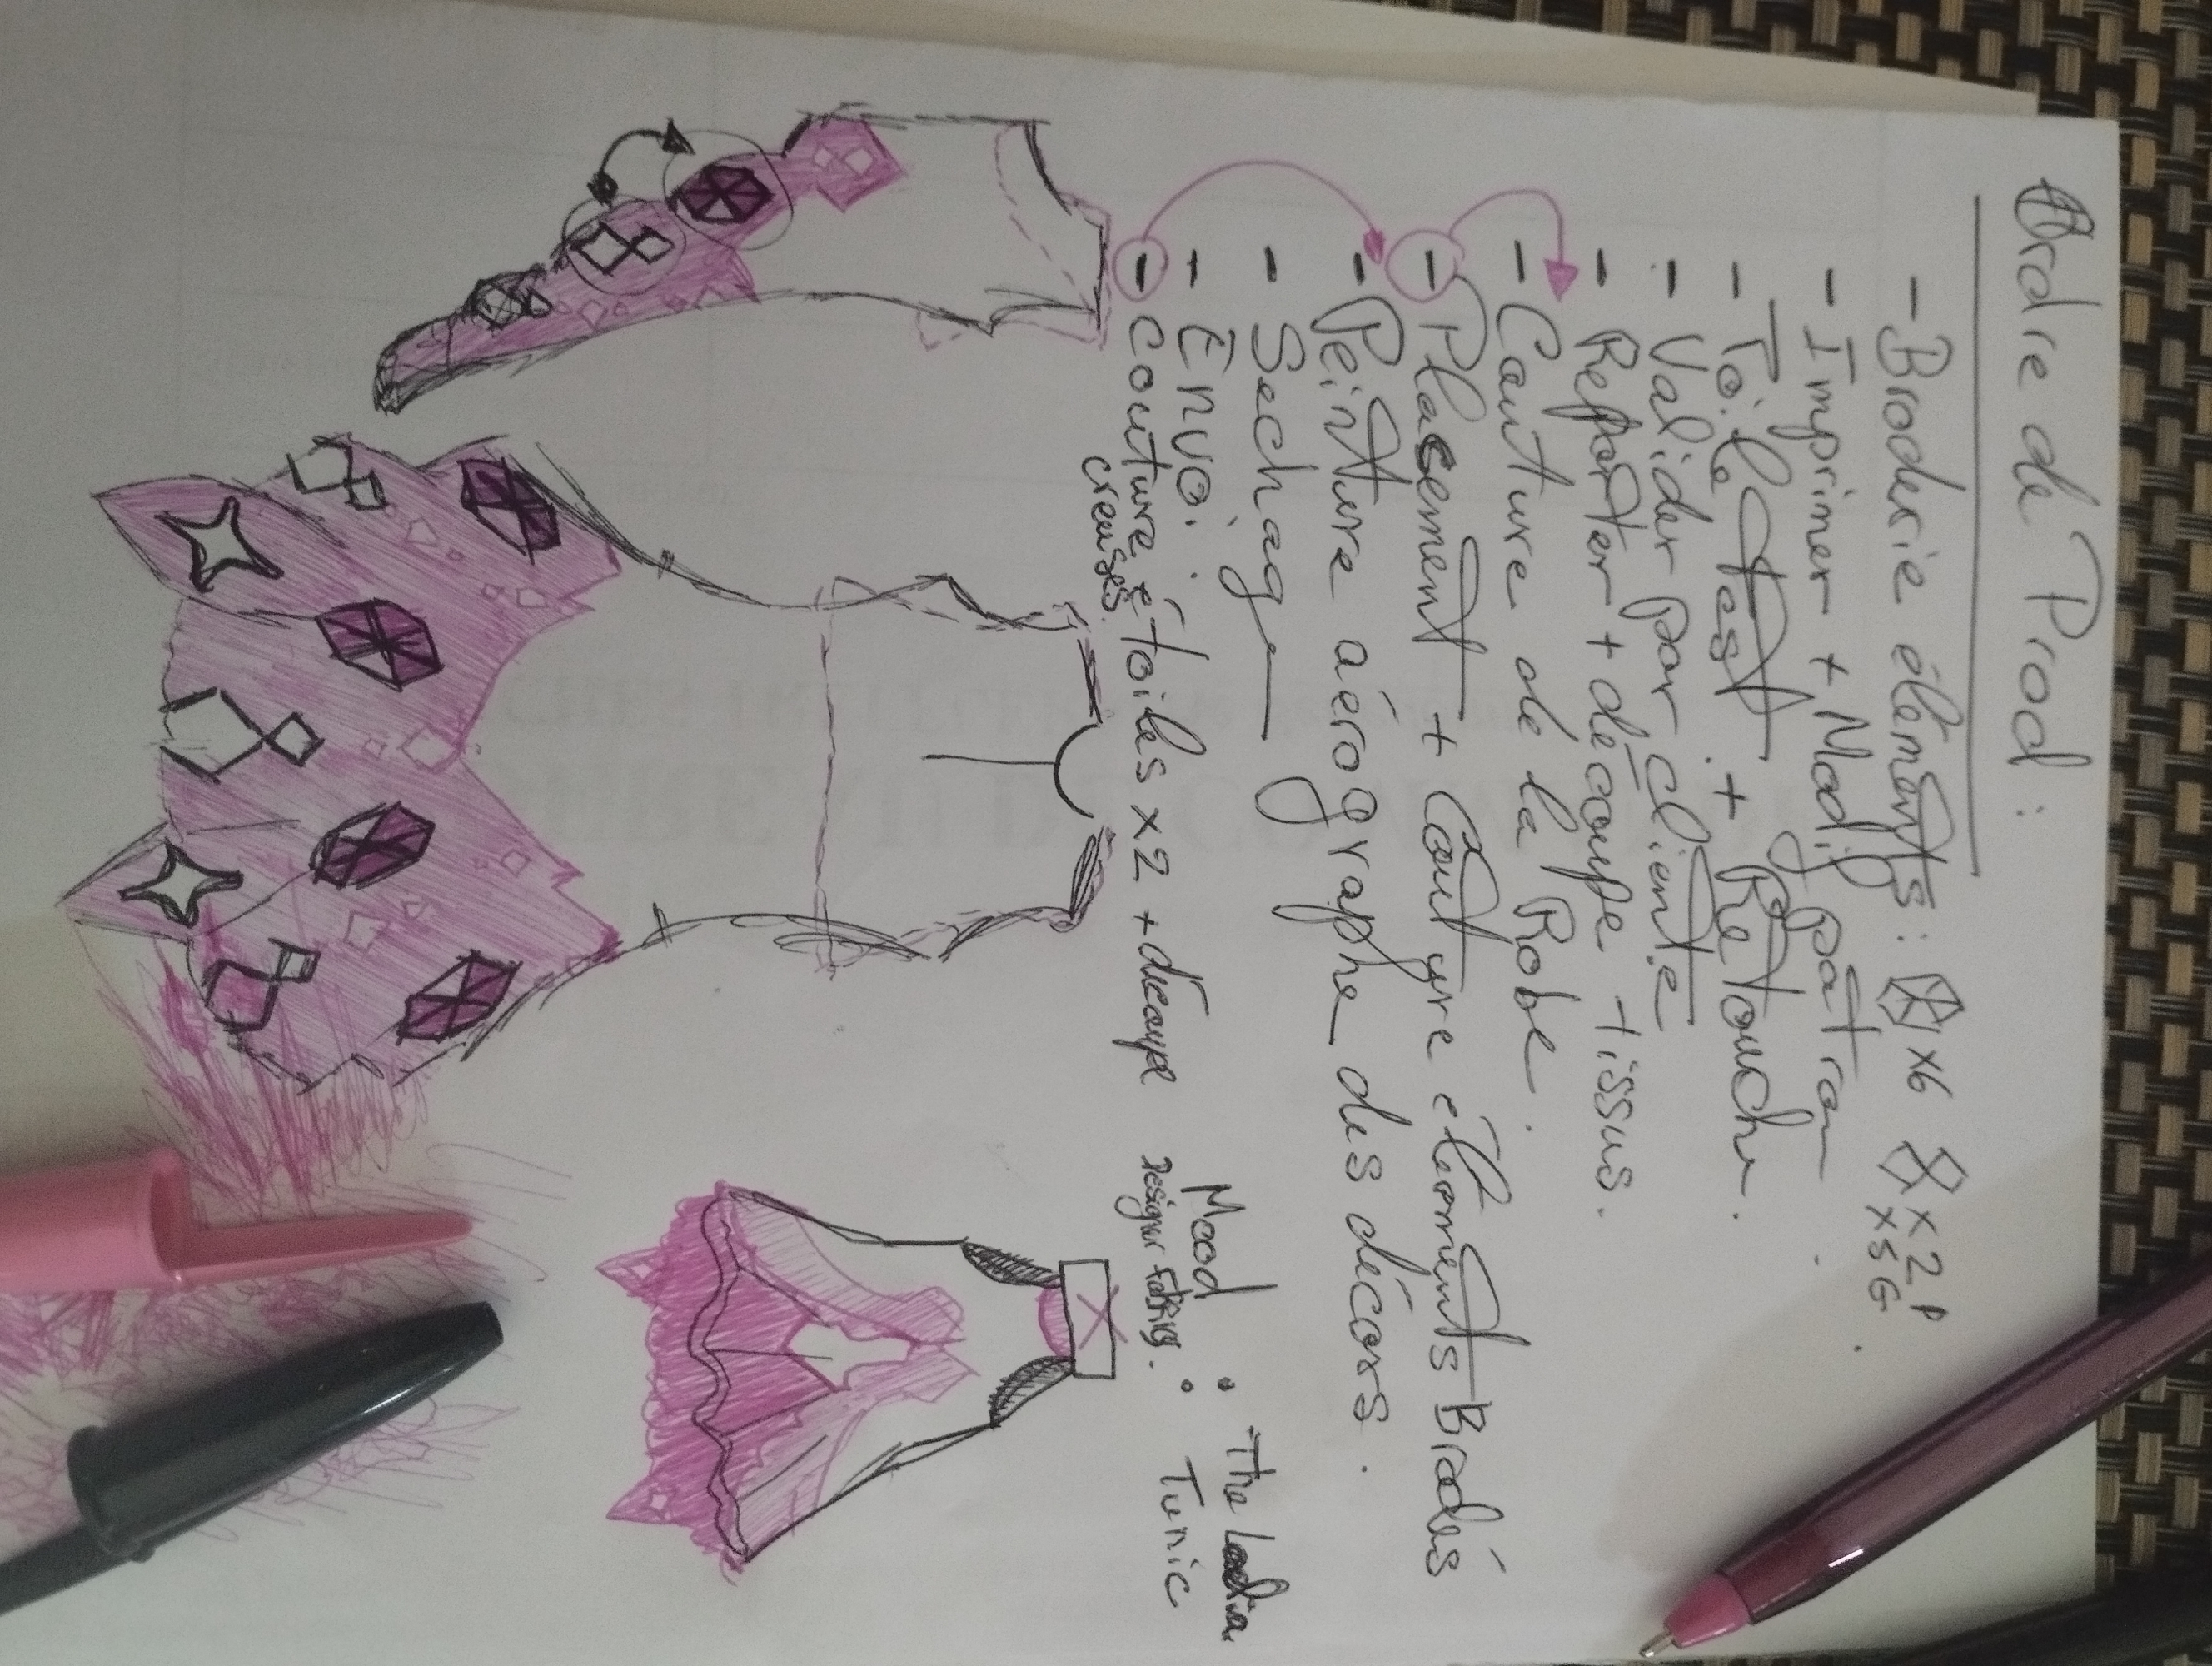 Ordre de Prod :
- Broderie éléments : x6 x2 P
x5 G
- Imprimer + Modif patron
- Toile test + Retouche.
- Valider par cliente
- Reporter + découpe tissus.
- Couture de la Robe.
- Plasement + Couture éléments Brodés
- Peinture aérographe des décors.
- Sechage
- Envoi
- couture étoiles x2 + découpe
creuses.
Mood : The
Designer : Tunic